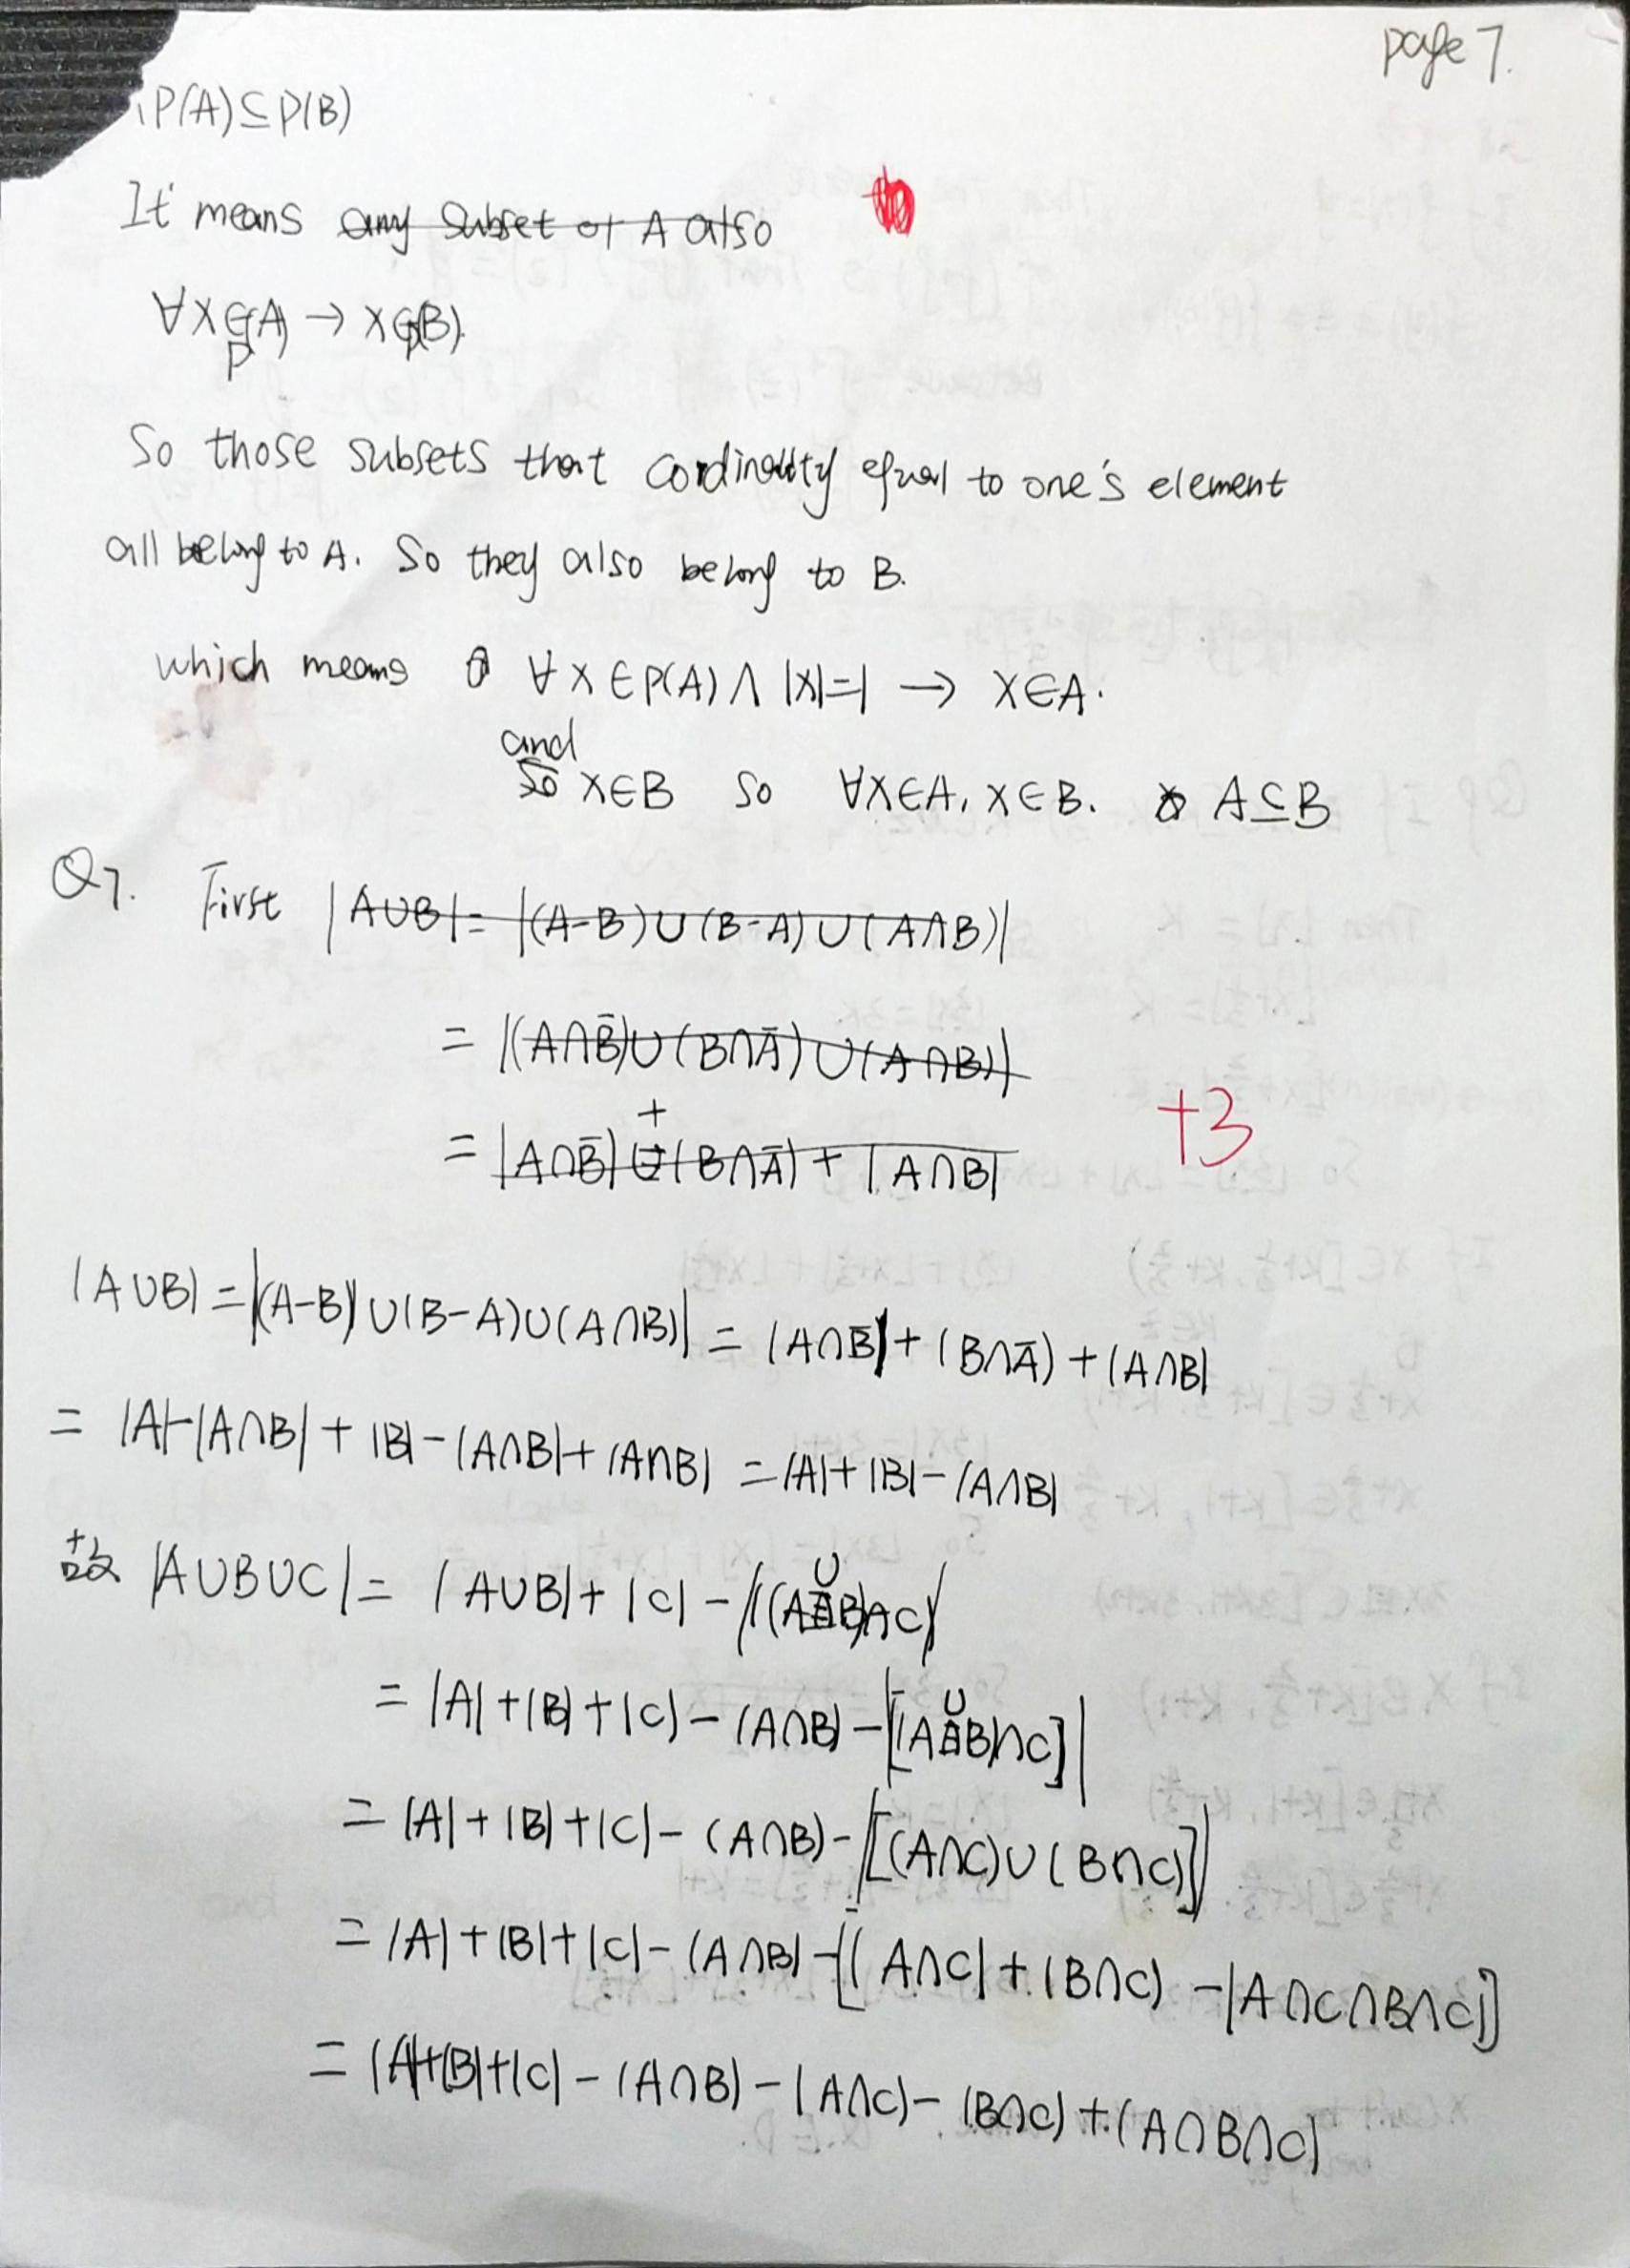 page 7.
P(A)⊆P(B)
It means any subset of A also
∀x∈P(A) → x∈P(B).
So those subsets that cordinality equal to one's element
all belong to A. So they also belong to B.
which means ∀x∈P(A)∧|x|=1 → x∈A.
and
so x∈B so ∀x∈A, x∈B. A⊆B
Q7. First |A∪B|= |(A-B)∪(B-A)∪(A∩B)|
= |(A∩B̄)∪(B∩Ā)∪(A∩B)|
= |A∩B̄|+(B∩Ā)+|A∩B|
+3
|A∪B|=|(A-B)∪(B-A)∪(A∩B)| = |A∩B̄|+(B∩Ā)+|A∩B|
= |A|-|A∩B|+|B|-|A∩B|+|A∩B| =|A|+|B|-|A∩B|
故 |A∪B∪C|= |A∪B|+|C|-|(A∪B)∩C|
= |A|+|B|+|C|-|A∩B|-|[(A∪B)∩C]|
= |A|+|B|+|C|-(A∩B)-|[(A∩C)∪(B∩C)]|
= |A|+|B|+|C|-|A∩B|-[|A∩C|+|B∩C)-|A∩C∩B∩C|]
= |A|+|B|+|C|-|A∩B)-|A∩C)-|B∩C)+|A∩B∩C|